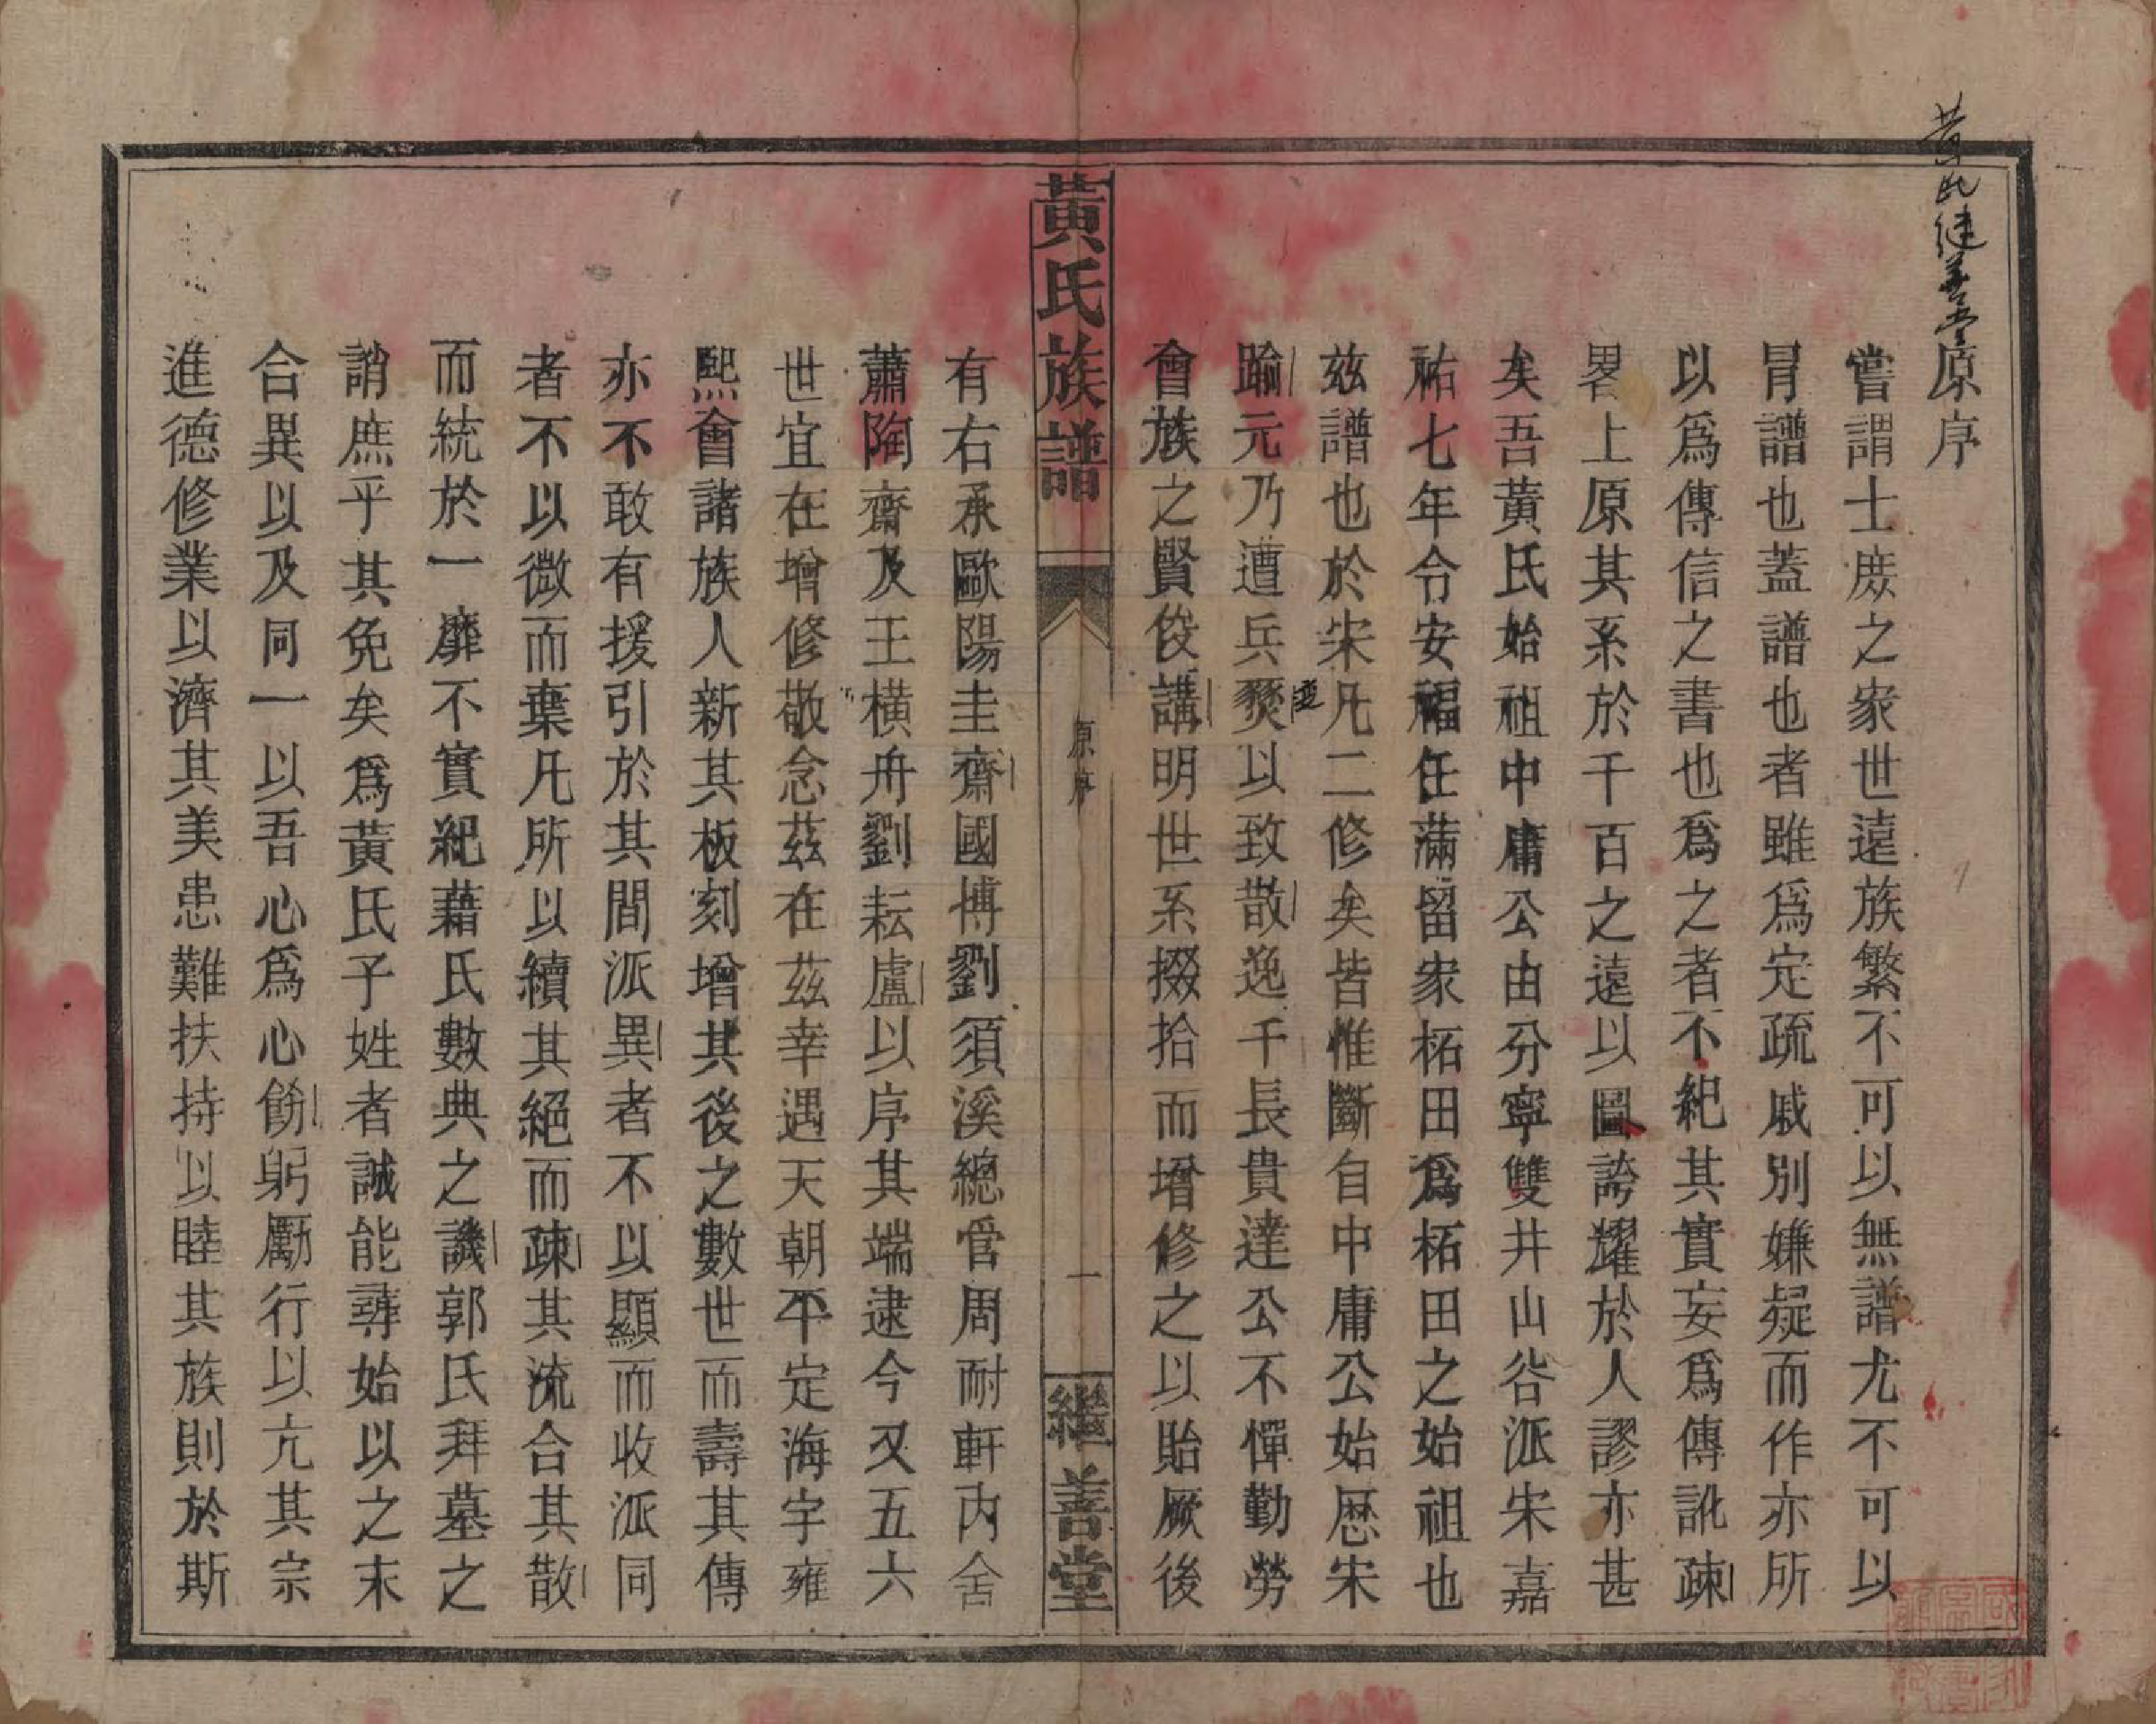 黄氏継善堂
原序
嘗謂士庻之家世遠族繁不可以無譜尤不可以
冐譜也蓋譜也者雖爲定疏戚別嫌疑而作亦所
以爲傳信之書也爲之者不紀其實妄爲傳訛疎
畧上原其系於千百之遠以圖誇耀於人謬亦甚
矣吾黄氏始祖中庸公由分寧雙井山谷派宋嘉
祐七年令安福任滿留家柘田爲柘田之始祖也
玆譜也於宋凡二修矣皆惟斷自中庸公始歴宋
踰元乃遭兵燹以致散逸千長貴達公不憚勤勞
會族之賢俊講明世系掇拾而增修之以貽厥後
黄氏族譜
原序
一
繼善堂
有右承歐陽圭齋國博劉須溪總管周耐軒内舍
蕭陶齋及王橫舟劉耘盧以序其端逮今又五六
世宜在增修敬念茲在茲幸遇天朝平定海宇雍
熙會諸族人新其板刻增其後之數世而壽其傳
亦不敢有援引於其間派異者不以顯而收派同
者不以微而棄凡所以續其絕而疎其流合其散
而統於一靡不實紀藉氏數典之譏郭氏拜墓之
誚庶乎其免矣爲黃氏子姓者誠能尋始以之末
合異以及同一以吾心爲心飭躬勵行以亢其宗
進德修業以濟其美患難扶持以睦其族則於斯